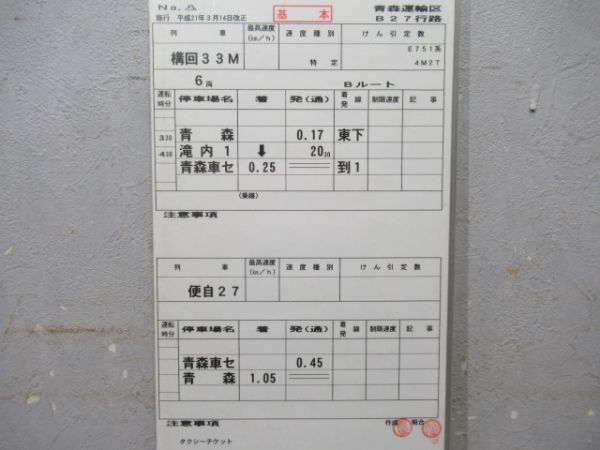 No. 5
施行 平成21年3月14日改正
基本
青森運輸区
B27行路
列車 最高速度(km/h) 速度種別 けん引定数
構回33M 特定 E751系 4M2T
6両 Bルート
運転時分 停車場名 着 発(通) 着発線 制限速度 記事
3 30 青森 0.17 東下
4 30 滝内1 ↓ 20 30
青森車セ 0.25 到1
(乗継)
注意事項
列車 最高速度(km/h) 速度種別 けん引定数
便自27
運転時分 停車場名 着 発(通) 着発線 制限速度 記事
青森車セ 0.45
青森 1.05
注意事項
作成 照合
タクシーチケット